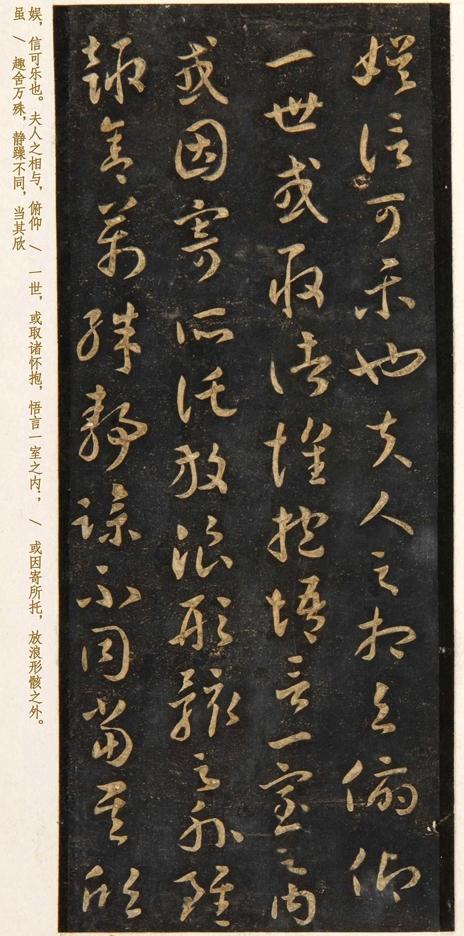 娛信可樂也夫人之相與俯仰
一世或取諸懷抱悟言一室之內
或因寄所託放浪形骸之外雖
趣舍萬殊靜躁不同當其欣
娱，信可乐也。夫人之相与，俯仰 / 一世，或取诸怀抱，悟言一室之内； / 或因寄所托，放浪形骸之外。
虽 / 趣舍万殊，静躁不同，当其欣